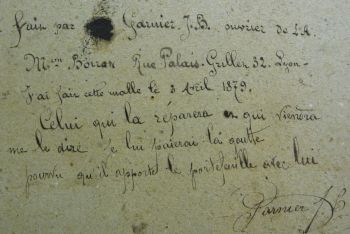 fait par Garnier J.B. ouvrier de La
Mson Boiron Rue Palais-Grillet 32. Lyon-
J'ai fait cette malle le 3 Avril 1879.
Celui qui la réparera et qui viendra
me le dire je lui paierai la goutte
pourvu qu'il apporte le portefeuille avec lui
Garnier